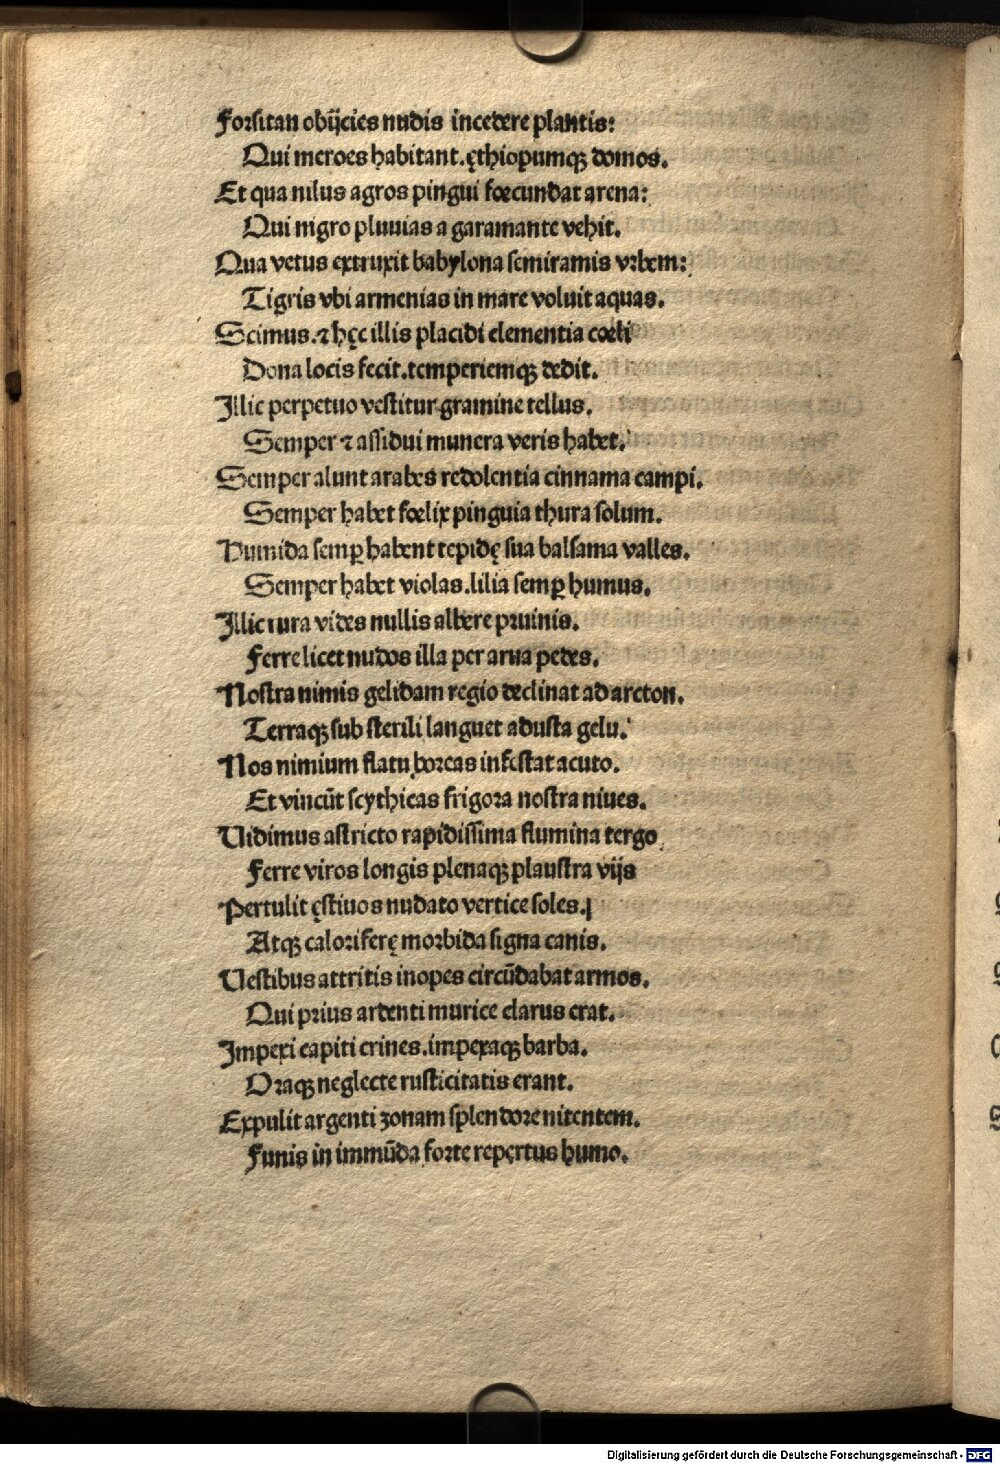 Forsitan obijcies nudis incedere plantis:
Qui meroes habitant.ęthiopumqꝫ domos.
Et qua nilus agros pingui fœcundat arena:
Qui nigro pluuias a garamante vehit.
Qua vetus extruxit babylona semiramis vrbem:
Tigris vbi armenias in mare voluit aquas.
Scimus.⁊ hęc illis placidi clementia cœli
Dona locis fecit.temperiemqꝫ dedit.
Illic perpetuo vestitur gramine tellus.
Semper ⁊ assidui munera veris habet.
Semper alunt arabes redolentia cinnama campi.
Semper habet fœlix pinguia thura solum.
Humida semꝑ habent tepidę sua balsama valles.
Semper habet violas.lilia semꝑ humus.
Illic rura vides nullis albere pruinis.
Ferre licet nudos illa per arua pedes.
Nostra nimis gelidam regio declinat ad arcton.
Terraqꝫ sub sterili languet adusta gelu.
Nos nimium flatu boreas infestat acuto.
Et vincūt scythicas frigora nostra niues.
Uidimus astricto rapidissima flumina tergo
Ferre viros longis plenaqꝫ plaustra vijs
Pertulit ęstiuos nudato vertice soles.
Atqꝫ caloriferę morbida signa canis.
Uestibus attritis inopes circūdabat armos.
Qui prius ardenti murice clarus erat.
Impexi capiti crines.impexaqꝫ barba.
Oraqꝫ neglecte rusticitatis erant.
Expulit argenti zonam splendore nitentem.
Funis in immūda forte repertus humo.
Digitalisierung gefördert durch die Deutsche Forschungsgemeinschaft - DFG